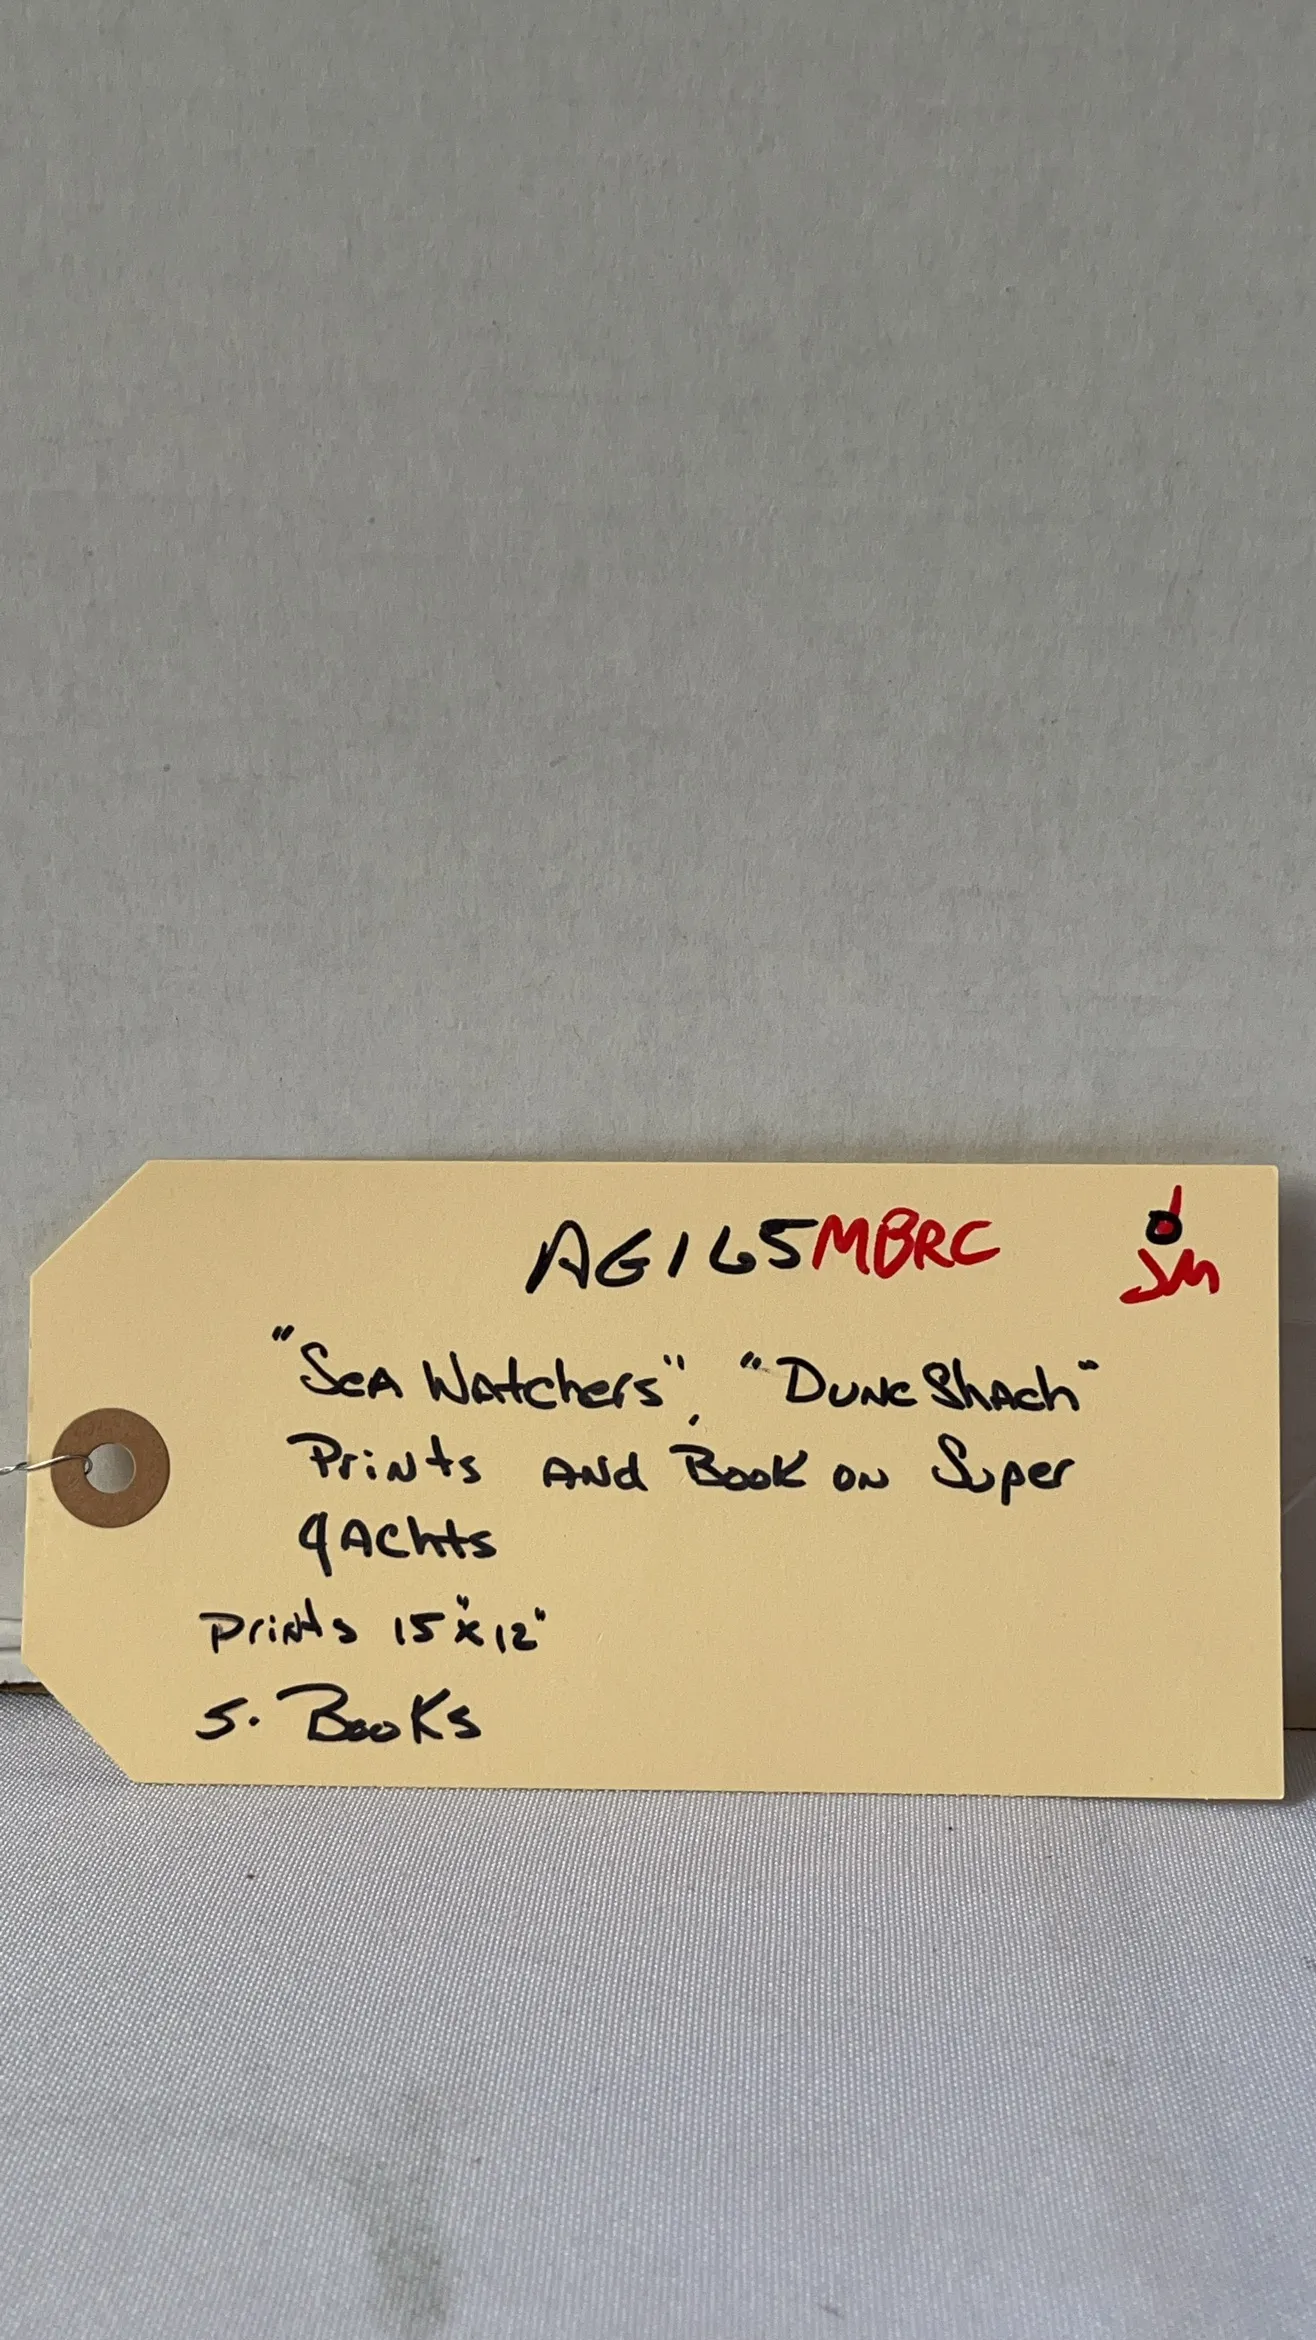 AG165MBRC JM
"Sea Watchers", "Dune Shach"
Prints and Book on Super
Yachts
Prints 15"x12"
5. Books